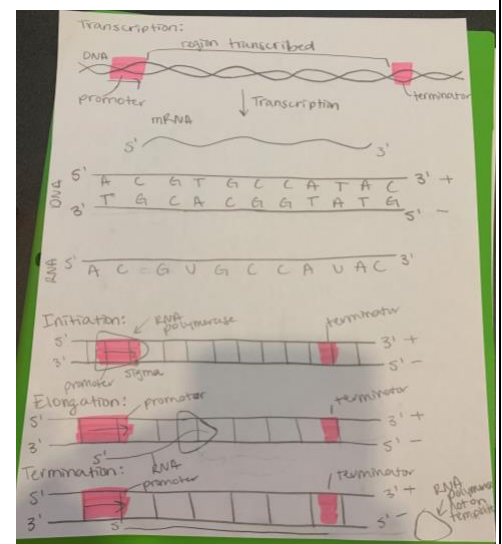 Transcription:
region transcribed
DNA
promoter
terminator
Transcription
mRNA
5' 3'
DNA
5' A C G T G C C A T A C 3' +
3' T G C A C G G T A T G 5' -
RNA 5' A C G U G C C A U A C 3'
Initiation: RNA polymerase terminator
5' 3' +
3' 5' -
promoter sigma
Elongation: promoter terminator
5' 3' +
3' 5' -
5'
Termination: RNA promoter terminator
5' 3' +
3' 5' -
5'
RNA
polymerase
not on
template